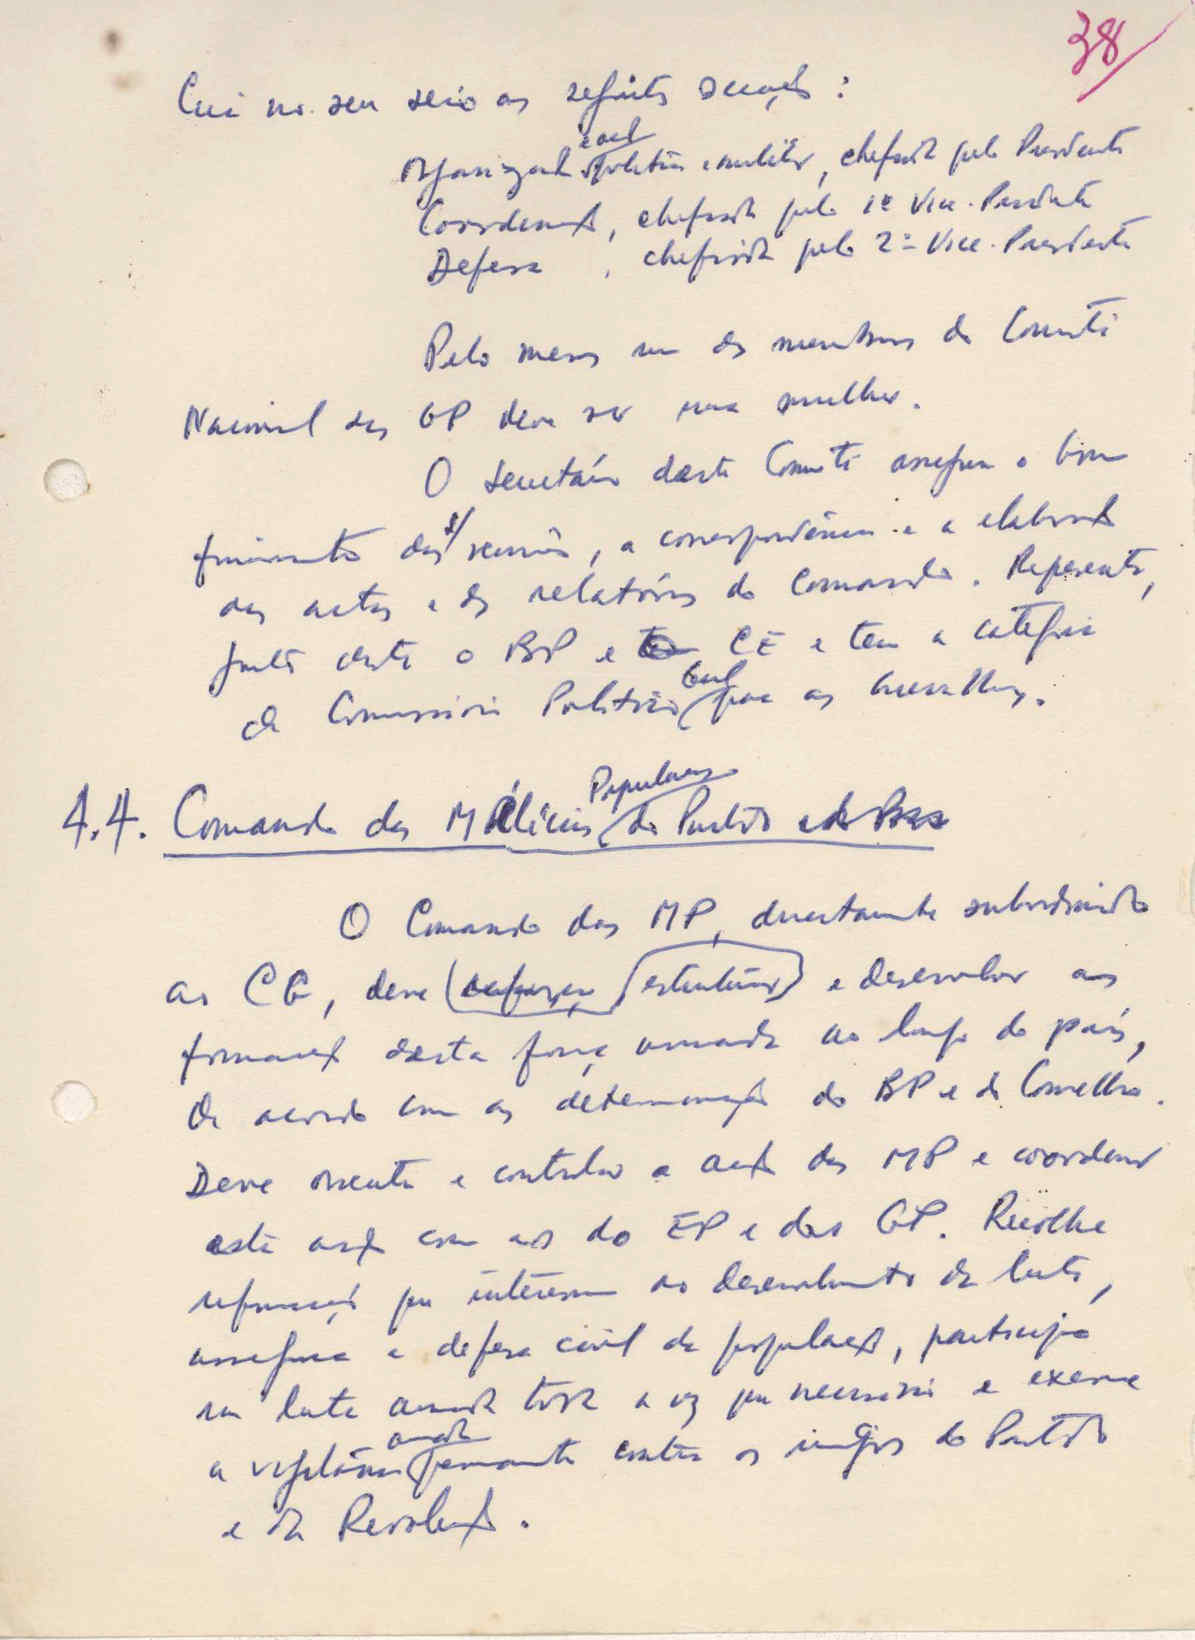 38
Cria no seu seio as seguintes secções:
Organização política e militar, chefiada pelo Presidente
Coordenação, chefiada pelo 1º Vice-Presidente
Defesa, chefiada pelo 2º Vice-Presidente
Pelo menos um dos membros do Comité
Nacional das GP deve ser uma mulher.
O Secretário deste Comité assegura o bom
funcionamento das s/ reuniões, a correspondência e a elaboração
das actas e dos relatórios do Comando. Representa,
junto deste o BP e CE e tem a categoria
de Comissário Político para as Guerrilhas.
4.4. Comando das Milícias Populares do Partido
O Comando das MP, directamente subordinado
ao CG, deve estruturar e desenvolver as
formações desta força armada ao longo do país,
de acordo com as determinações do BP e do Conselho.
Deve orientar e controlar a acção das MP e coordenar
esta acção com as do EP e das GP. Recolhe
informações que interessem ao desenvolvimento da luta,
assegura a defesa civil da população, participa
na luta armada toda a vez que necessário e exerce
a vigilância armada permanente contra os inimigos do Partido
e da Revolução.